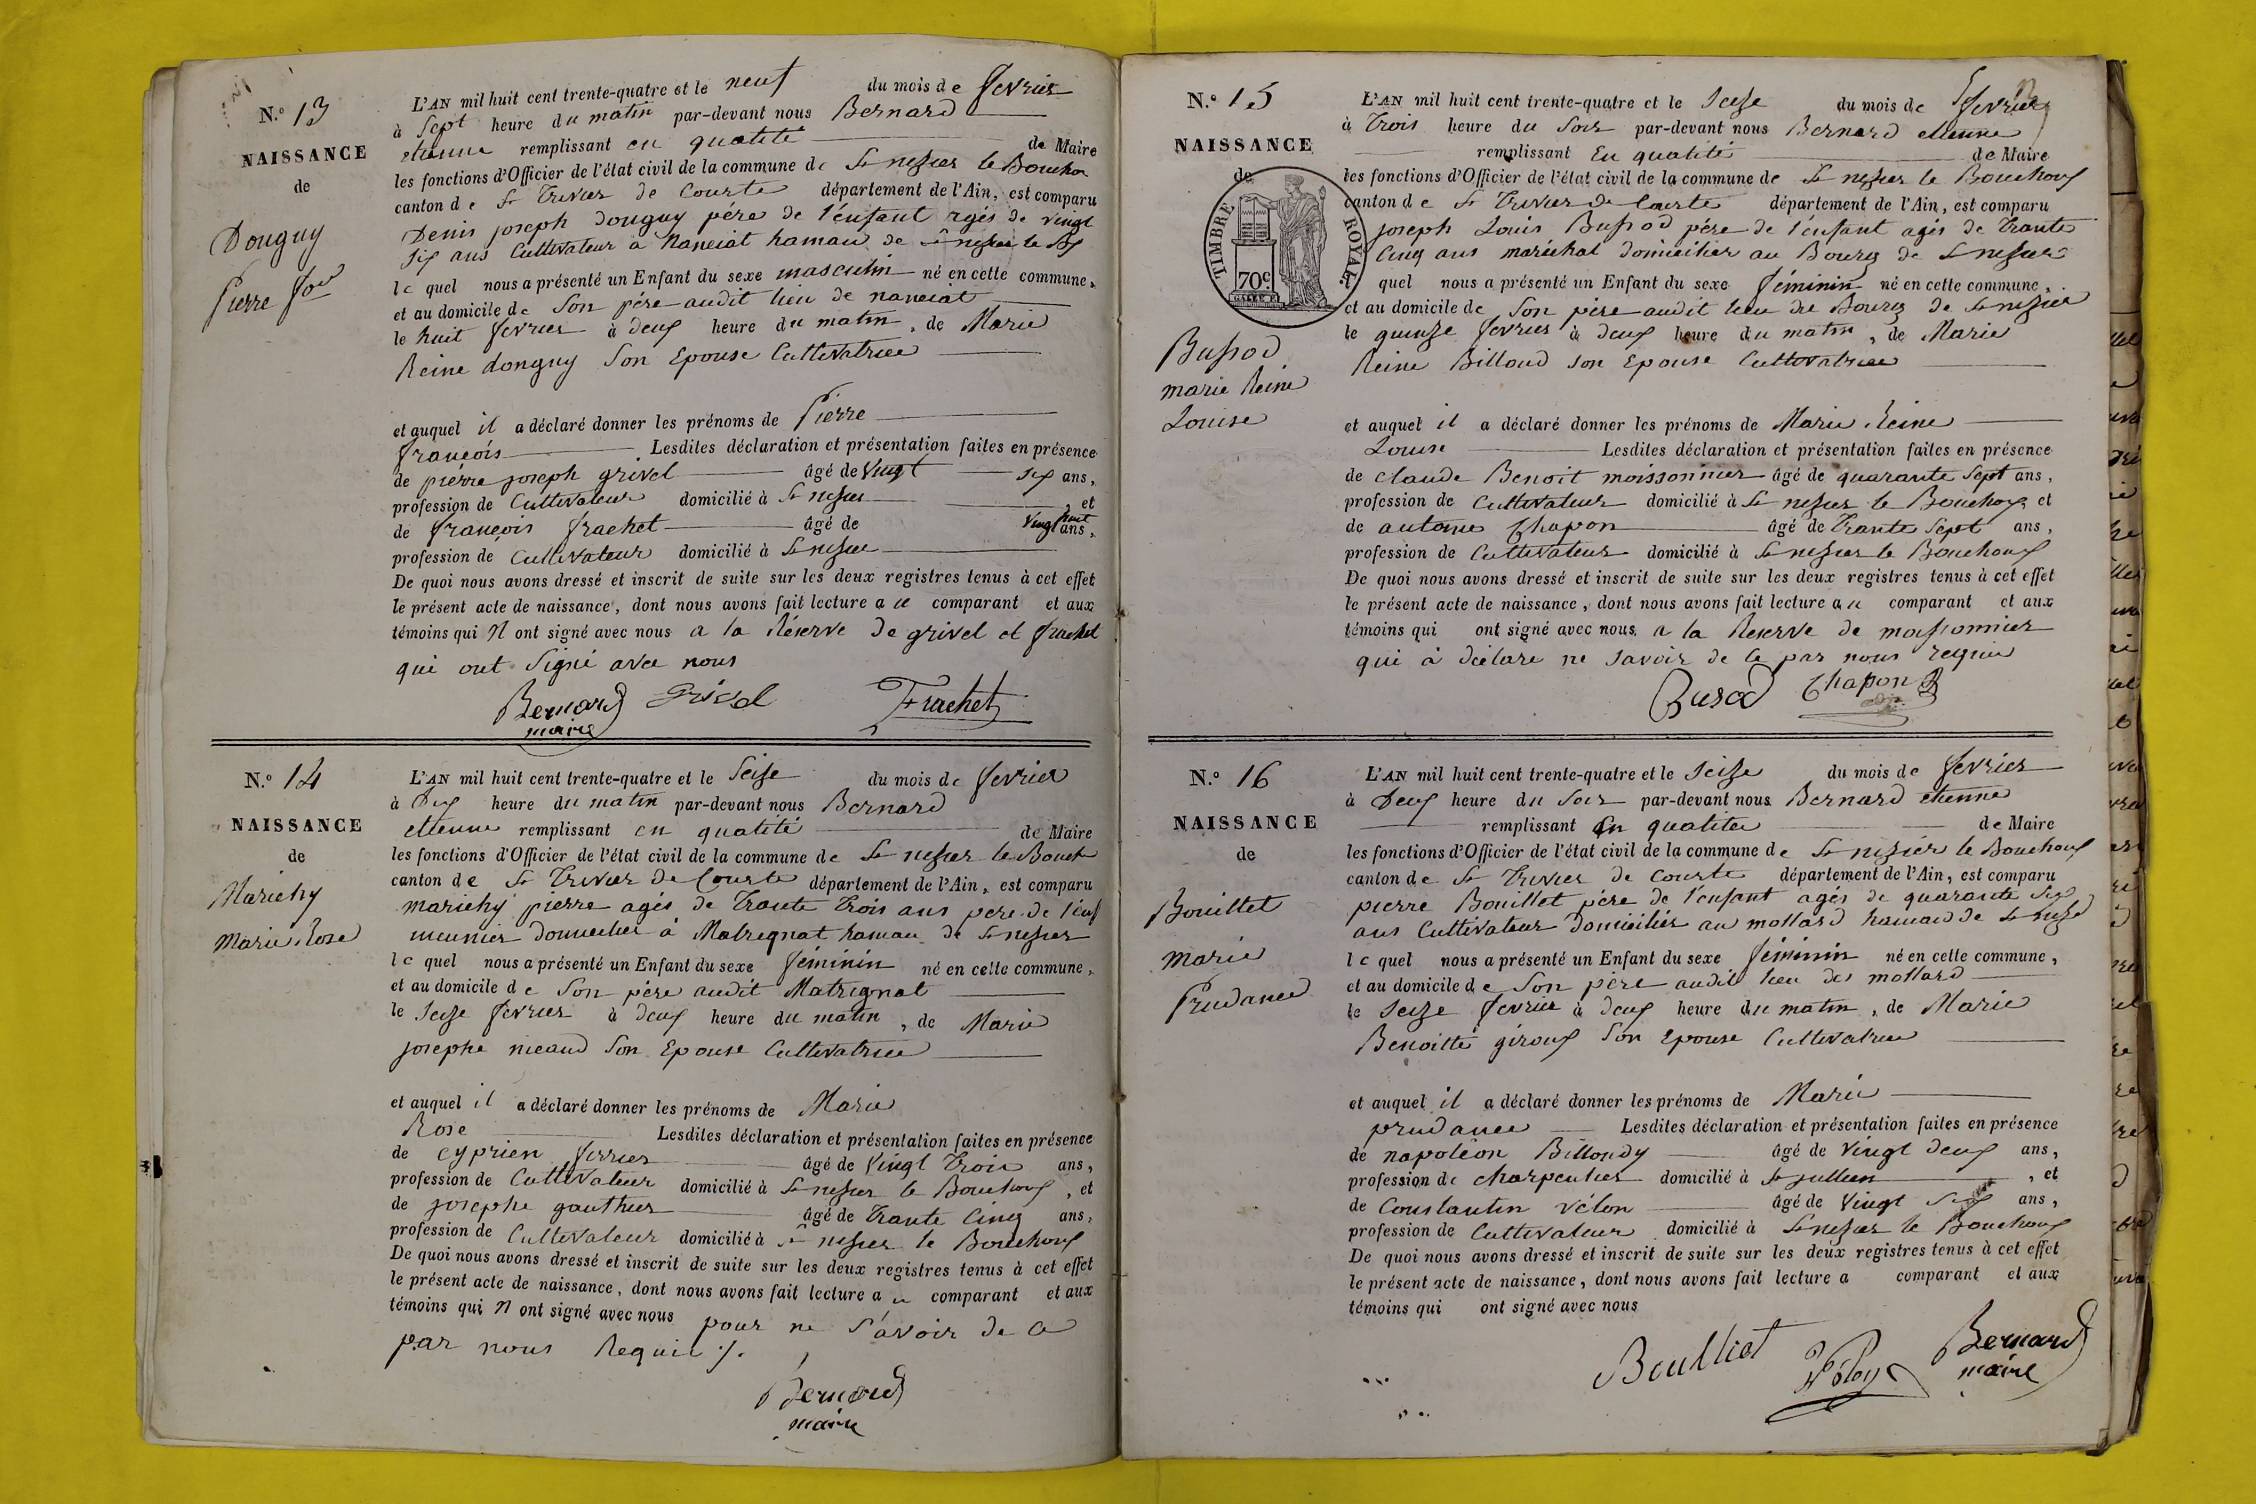 N.º 13
NAISSANCE
de
Donguy
Pierre fois
L'AN mil huit cent trente-quatre et le neuf du mois de fevrier
à Sept heure du matin par-devant nous Bernard
etienne remplissant en qualité de Maire
les fonctions d'Officier de l'état civil de la commune de St nizier le Bouchou
canton de St Trivier de Courte département de l'Ain, est comparu
Denis joseph donguy père de l'enfant agés de vingt
six ans Cultivateur a nanciat hamau de St nizier le
le quel nous a présenté un Enfant du sexe masculin né en cette commune,
et au domicile de Son père audit lieu de nanciat
le huit fevrier à deux heure du matin, de Marie
Reine donguy Son Epouse Cultivatrice
et auquel il a déclaré donner les prénoms de Pierre
françois Lesdites déclaration et présentation faites en présence
de pierre joseph grivel âgé de vingt six ans,
profession de Cultivateur domicilié à St nizier et
de françois frachet âgé de vingt huit ans,
profession de Cultivateur domicilié à St nizier
De quoi nous avons dressé et inscrit de suite sur les deux registres tenus à cet effet
le présent acte de naissance, dont nous avons fait lecture au comparant et aux
témoins qui n ont signé avec nous a la Réserve de grivel et frachet
qui ont Signé avec nous
Bernard Grivel Frachet
maire
N.º 14
NAISSANCE
de
Marichy
Marie Rose
L'AN mil huit cent trente-quatre et le Seize du mois de fevrier
à Dix heure du matin par-devant nous Bernard
etienne remplissant en qualité de Maire
les fonctions d'Officier de l'état civil de la commune de St nizier le Bouch
canton de St Trivier de Courte département de l'Ain, est comparu
marichy pierre agés de Trante Trois ans père de l'enf
meunier domicilier à Matrignat hamau de St nizier
le quel nous a présenté un Enfant du sexe féminin né en cette commune,
et au domicile de Son père audit Matrignat
le Seize fevrier à deux heure du matin, de Marie
josephe nicaud Son Epouse Cultivatrice
et auquel il a déclaré donner les prénoms de Marie
Rose Lesdites déclaration et présentation faites en présence
de cyprien ferrier âgé de Vingt Trois ans,
profession de Cultivateur domicilié à St nizier le Bouchoux, et
de josephe gauthier âgé de Trante Cinq ans,
profession de Cultivateur domicilié à St nizier le Bouchoux
De quoi nous avons dressé et inscrit de suite sur les deux registres tenus à cet effet
le présent acte de naissance, dont nous avons fait lecture au comparant et aux
témoins qui n ont signé avec nous pour ne savoir de ce
par nous Requis ./.
Bernard
maire
N.º 15
NAISSANCE
de
TIMBRE ROYAL
70c
Bussod
marie Reine
Louise
L'AN mil huit cent trente-quatre et le Seize du mois de fevrier
à Trois heure du Soir par-devant nous Bernard etienne
remplissant En qualité de Maire
les fonctions d'Officier de l'état civil de la commune de St nizier le Bouchoux
canton de St Trivier de Courte département de l'Ain, est comparu
joseph Louis Bussod père de l'enfant agés de Trante
Cinq ans maréchal domicilier au Bourg de St nizier
quel nous a présenté un Enfant du sexe féminin né en cette commune,
et au domicile de Son père audit lieu du Bourg de St nizier
le quinze fevrier à deux heure du matin, de Marie
Reine Billoud son Epouse Cultivatrice
et auquel il a déclaré donner les prénoms de Marie Reine
Louise Lesdites déclaration et présentation faites en présence
de claude Benoit moissonnier âgé de quarante Sept ans,
profession de Cultivateur domicilié à St nizier le Bouchoux et
de antoine Chapon âgé de Trante Sept ans,
profession de Cultivateur domicilié à St nizier le Bouchoux
De quoi nous avons dressé et inscrit de suite sur les deux registres tenus à cet effet
le présent acte de naissance, dont nous avons fait lecture au comparant et aux
témoins qui ont signé avec nous a la Reserve de moissonnier
qui à déclare ne savoir de ce par nous requie
Busod Chapon
N.º 16
NAISSANCE
de
Bouillet
marie
Prudance
L'AN mil huit cent trente-quatre et le Seize du mois de fevrier
à Deux heure du Soir par-devant nous Bernard etienne
remplissant en qualitée de Maire
les fonctions d'Officier de l'état civil de la commune de St nizier le Bouchoux
canton de St Trivier de Courte département de l'Ain, est comparu
pierre Bouillet père de l'enfant agés de quarante six
ans Cultivateur domicilier au mollard hamau de St nizier
le quel nous a présenté un Enfant du sexe féminin né en cette commune,
et au domicile de Son père audit lieu des mollard
le Seize fevrier à deux heure du matin, de Marie
Benoitte giroux Son Epouse Cultivatrice
et auquel il a déclaré donner les prénoms de Marie
prudance Lesdites déclaration et présentation faites en présence
de napoléon Billoudy âgé de vingt deux ans,
profession de charpentier domicilié à St jullien, et
de Constantin vélon âgé de vingt six ans,
profession de Cultivateur domicilié à St nizier le Bouchoux
De quoi nous avons dressé et inscrit de suite sur les deux registres tenus à cet effet
le présent acte de naissance, dont nous avons fait lecture a comparant et aux
témoins qui ont signé avec nous
Boulliet Bernard
maire